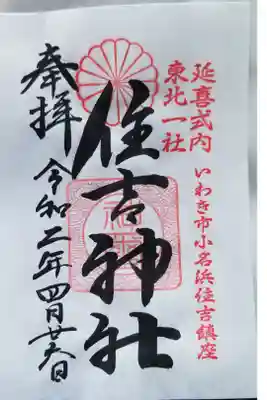 延喜式内
東北一社
いわき市小名浜住吉鎮座
住吉神社
奉拝
令和二年四月廿六日